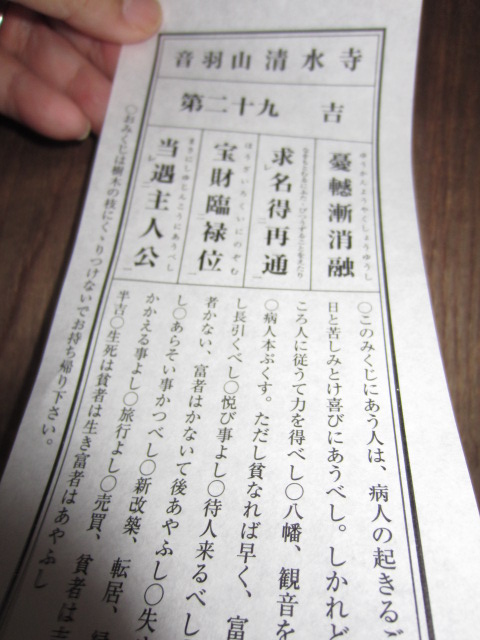 音羽山清水寺
第二十九 吉
ゆうかんようやくしょうゆうし
憂轗漸消融
求名得再通
ほうざいろくいにのぞむ
宝財臨禄位
まさにしゅじんこうにあうべし
当遇主人公
〇このみくじにあう人は、病人の起きるご
日と苦しみとけ喜びにあうべし。しかれど
ころ人に従うて力を得べし〇八幡、観音を
〇病人本ぷくす。ただし貧なれば早く、富
し長引くべし〇悦び事よし〇待人来るべし
者かない、富者はかないて後あやふし〇失
し〇あらそい事かつべし〇新改築、転居、
かかえる事よし〇旅行よし〇売買、貧者は
半吉〇生死は貧者は生き富者はあやふし
〇おみくじは樹木の枝にくゝりつけないでお持ち帰り下さい。